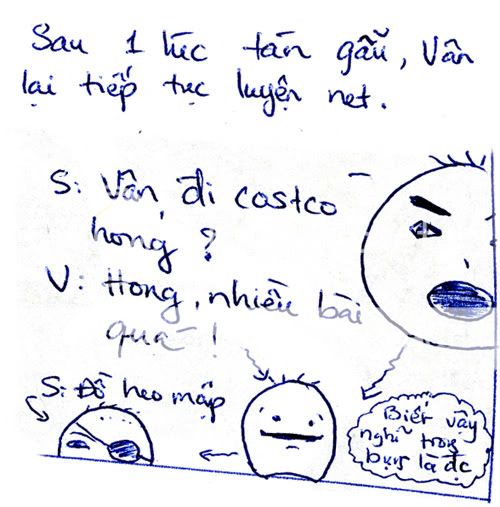 Sau 1 lúc tán gẫu, Vân
lại tiếp tục luyện net.
S: Vân, đi costco
hong?
V: Hong, nhiều bài
quá!
S: Đồ heo mập
Biết vậy
nghĩ trong
bụng là đc